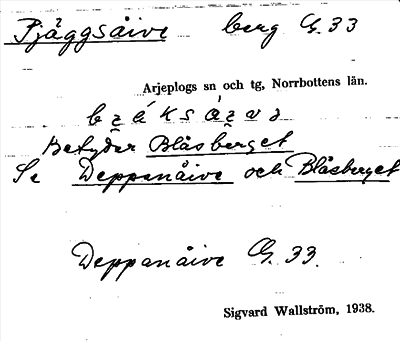 Pjäggsåive berg G. 33
Arjeplogs sn och tg, Norrbottens län.
Betyder Blåsberget
Se Deppanåive och Blåsberget
Deppanåive G. 33.
Sigvard Wallström, 1938.